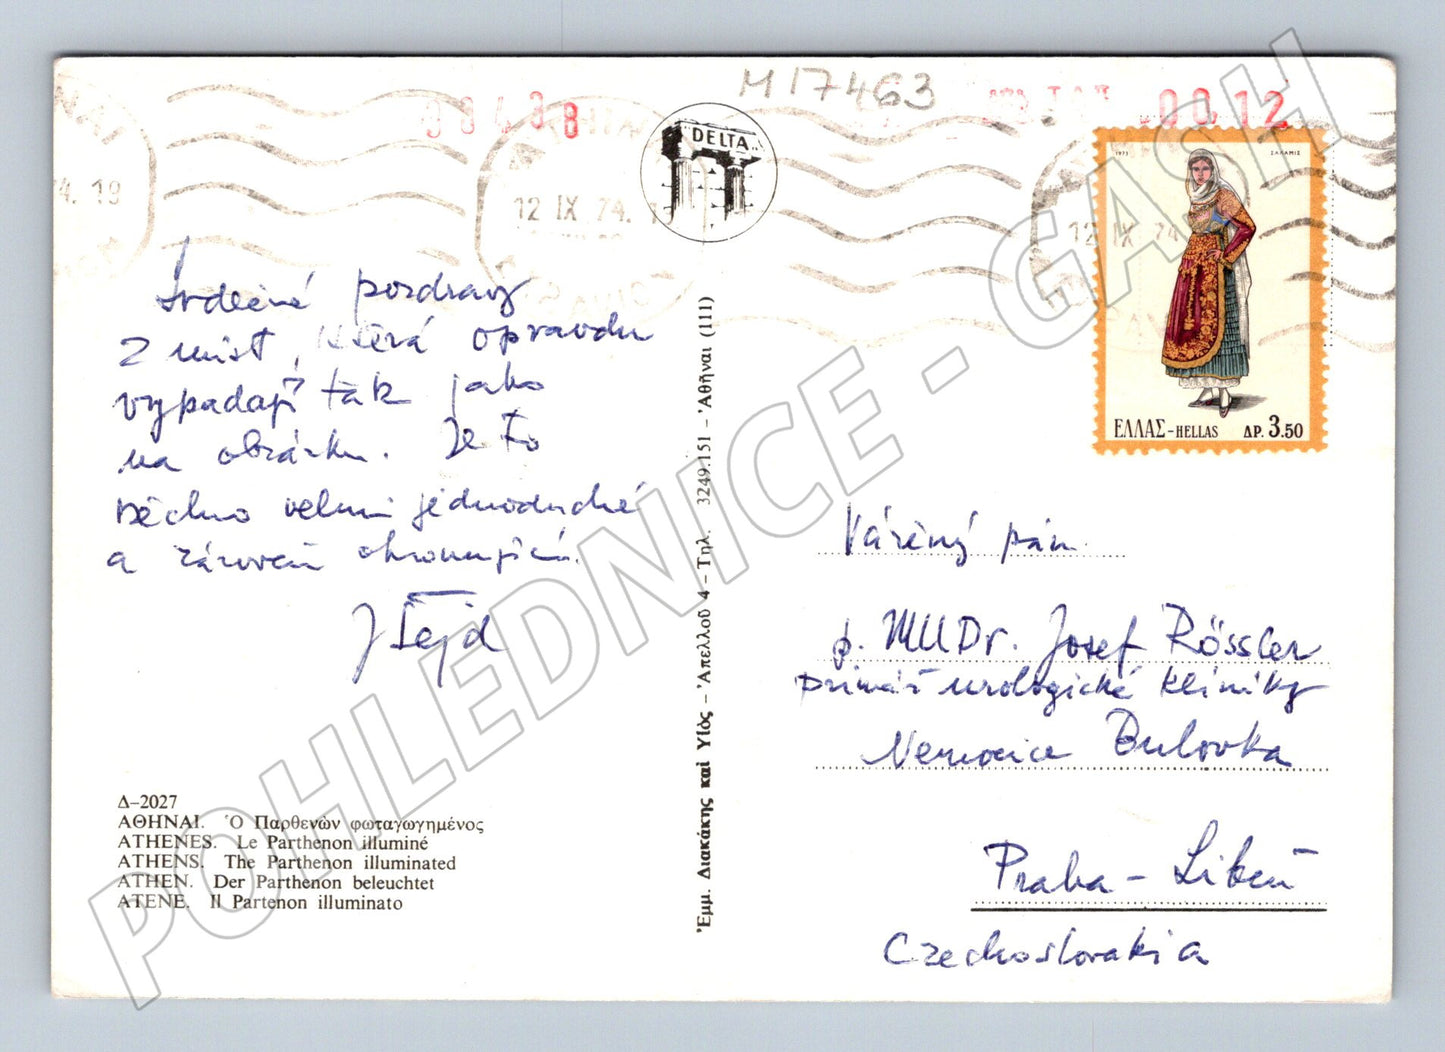 M17463
00.12
DELTA
12 IX 74
12 IX 74
74. 19
1973
ΣΑΛΑΜΙΣ
ΕΛΛΑΣ-HELLAS ΔΡ. 3.50
Srdečné pozdravy
z míst, která opravdu
vypadají tak jako
na obrázku. Je to
všechno velmi jednoduché
a zároveň ohromující.
J Šejd
Δ-2027
ΑΘΗΝΑΙ. Ὁ Παρθενὼν φωταγωγημένος
ATHENES. Le Parthenon illuminé
ATHENS. The Parthenon illuminated
ATHEN. Der Parthenon beleuchtet
ATENE. Il Partenon illuminato
Ἐμμ. Διακάκης καὶ Υἱὸς - Ἀπελλοῦ 4 - Τηλ. 3249.151 - Ἀθῆναι (111)
Vážený pán
p. MUDr. Josef Rössler
primář urologické kliniky
Nemocnice Bulovka
Praha - Libeň
Czechoslovakia
POHLEDNICE - GASH